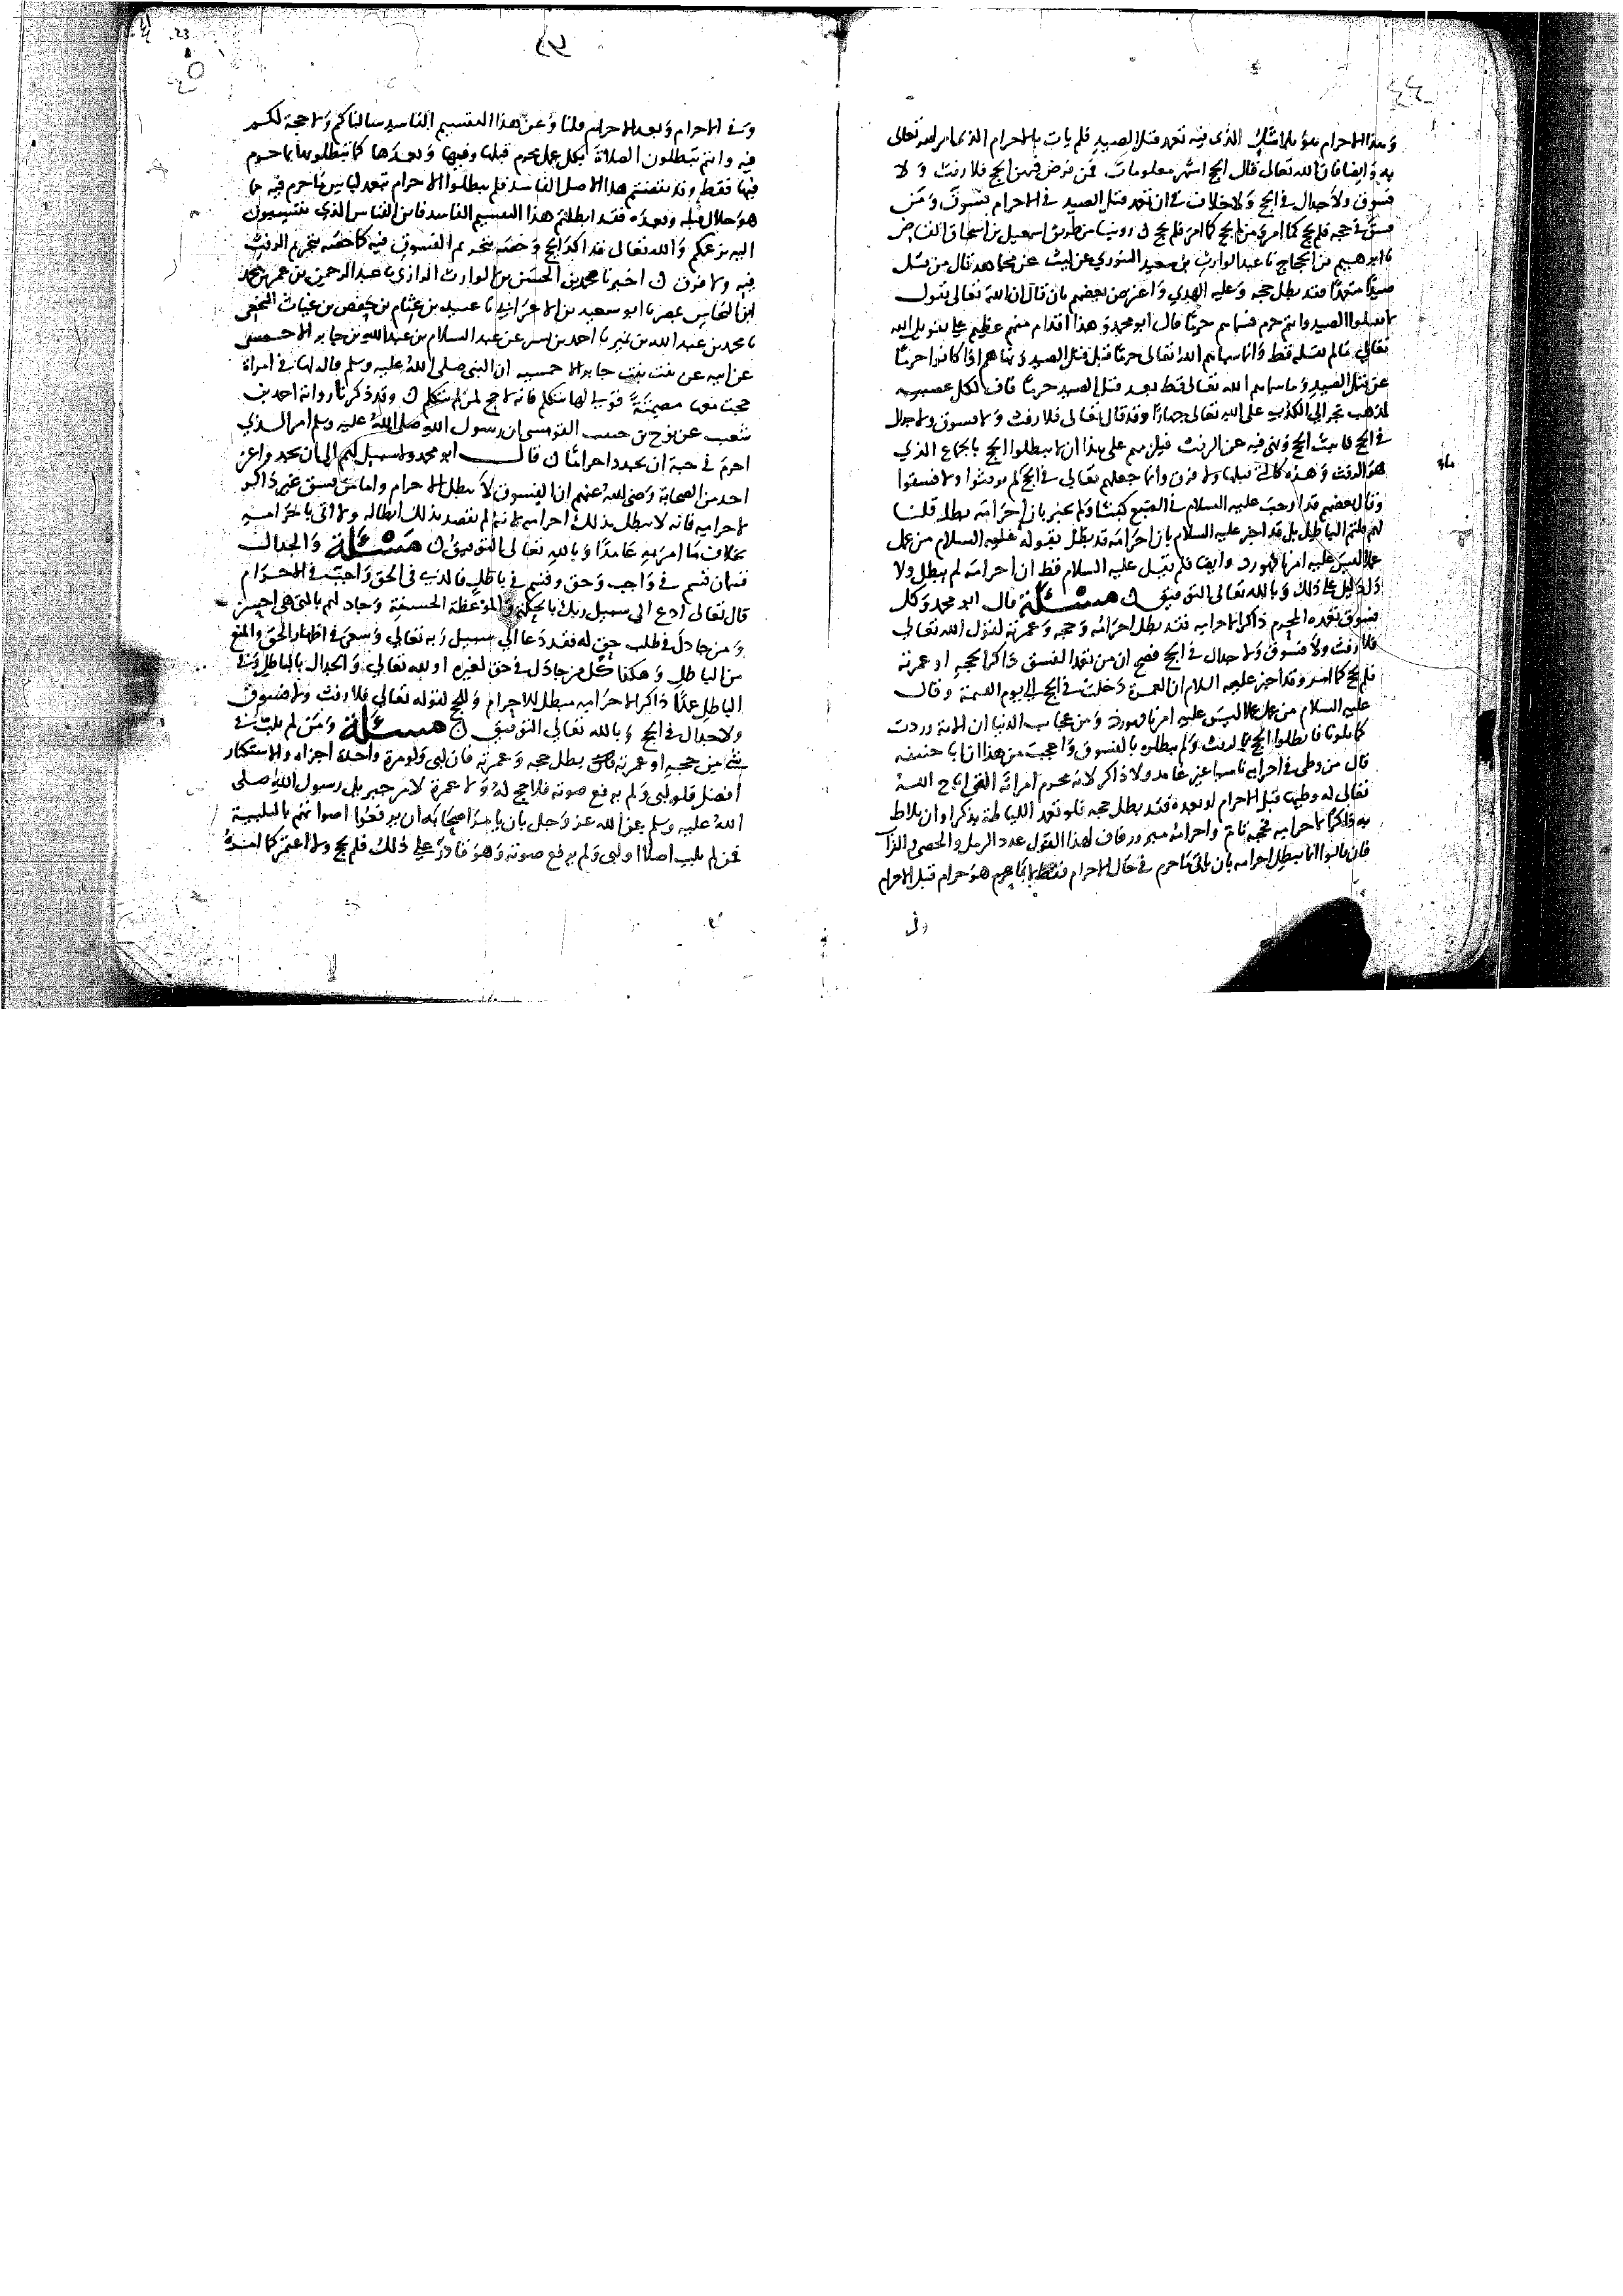 وهذا الاحرام هو بلا شك الذي فيه تعمد قتل الصيد فلم يات بالاحرام الذي امر الله تعالى
به وايضا فان الله تعالى قال الحج اشهر معلومات فمن فرض فيهن الحج فلا رفث ولا
فسوق ولا جدال في الحج ولا خلاف في ان تعمد قتل الصيد في الاحرام فسوق ومن
فسق في حجه فلم يحج كما امر ومن لم يحج كما امر فلم يحج ك روينا من طريق اسمعيل بن اسحاق القاضي
نا ابرهيم بن الحجاج نا عبد الوارث بن سعيد التنوري عن ليث عن مجاهد قال من قتل
صيدا متعمدا فقد بطل حجه وعليه الهدي واعترض بعضهم بان قال ان الله تعالى يقول
لا تقتلوا الصيد وانتم حرم فسماهم حرما قال ابو محمد وهذا اقدام منهم عظيم على تقويل الله
تعالى ما لم يقله قط وانما سماهم الله تعالى حرما قبل قتل الصيد ونهاهم اذا كانوا حرما
عن قتل الصيد وما سماهم الله تعالى قط بعد قتل الصيد حرما فاف لكل عصبيه
لمذهب تجر الى الكذب على الله تعالى جهارا وقد قال تعالى فلا رفث ولا فسوق ولا جدال
في الحج فاثبت الحج ونهى فيه عن الرفث فيلزمهم على هذا ان لا يبطلوا الحج بالجماع الذي
هو الرفث وهذه كالتي قبلها ولا فرق وانما جعلهم تعالى في الحج ما لم يرفثوا ولا فسقوا
وقال بعضهم قد اوجب عليه السلام في الضبع كبشا ولم يخبر بان احرامه بطل قلنا
لهم قلتم الباطل بل قد اخبر عليه السلام بان احرامه قد بطل بقوله عليه السلام من عمل
عملا ليس عليه امرنا فهو رد وايضا فلم يقل عليه السلام قط ان احرامه لم يبطل ولا
دل دليل على ذلك وبالله تعالى التوفيق ك مسئلة قال ابو محمد وكل
فسوق تعمده المحرم ذاكرا لاحرامه فقد بطل احرامه وحجه وعمرته لقول الله تعالى
فلا رفث ولا فسوق ولا جدال في الحج فصح ان من تعمد الفسق ذاكرا لحجه او عمرته
فلم يحج كما امر وقد اخبر عليه السلام ان العمرة دخلت في الحج الى يوم القيمة وقال
عليه السلام من عمل عملا ليس عليه امرنا فهو رد ومن عجايب الدنيا ان الاية وردت
كما تلونا فابطلوا الحج بالرفث ولم يبطلوه بالفسوق واعجب من هذا ان ابا حنيفه
قال من وطي في احرامه ناسيا غير عامد ولا ذاكر لانه محرم امراته التي اباح الله
تعالى له وطيها قبل الاحرام او بعده فقد بطل حجه فلو تعمد اللياطة بذكر او ان يلاط
به ذاكرا لاحرامه فحجه تام واحرامه مبرور فاف لهذا القول عدد الرمل والحصى والتراب
فان قالوا انما يبطل احرامه بان ياتي ما حرم في حال الاحرام فقط لا بما هو حرام قبل الاحرام
وفي
وفي الاحرام وبعد الاحرام قلنا وعن هذا التقسيم الفاسد سالناكم ولا حجة لكم
فيه وانتم تبطلون الصلاة بكل عمل محرم قبلها وفيها وبعدها كما تبطلونها بما حرم
فيها فقط وقد نقضتم هذا الاصل الفاسد فلم تبطلوا الاحرام بتعمد لباس ما حرم فيه مما
هو حلال قبله وبعده فقد ابطلتم هذا التقسيم الفاسد فاين القياس الذي تنتسبون
اليه بزعمكم والله تعالى قد اكد الحج وخصه بتحريم الفسوق فيه كما خصه بتحريم الرفث
فيه ولا فرق ك اخبرنا محمد بن الحسن بن الوارث الرازي نا عبد الرحمن بن عمر بن محمد
ابن النحاس بمصر نا ابو سعيد بن الاعرابي نا عبيد بن غنام بن حفص بن غياث النخعي
نا محمد بن عبد الله بن نمير نا احمد بن بشر عن عبد السلام بن عبد الله بن جابر الاحمسي
عن ابيه عن بنت جابر الاحمسيه ان النبي صلى الله عليه وسلم قال لها في امراة
حجت معها مصمتة قولي لها تتكلم فانه لا حج لمن لم يتكلم ك وقد ذكرنا رواية احمد بن
شعيب عن نوح بن حبيب القومسي ان رسول الله صلى الله عليه وسلم امر الذي
احرم في جبة ان يجدد احراما ك قال ابو محمد ولا سبيل لهم الى ان يجدوا عن
احد من الصحابة رضي الله عنهم ان الفسوق لا يبطل الاحرام واما من فسق غير ذاكر
لاحرامه فانه لا يبطل بذلك احرامه لانه لم يقصد بذلك ابطاله ولا اتى باحرامه
بخلاف ما امر به عامدا وبالله تعالى التوفيق ك مسئلة والجدال
قسمان قسم في واجب وحق وقسم في باطل فالذي في الحق واجب في الاحرام
قال تعالى ادع الى سبيل ربك بالحكمة والموعظة الحسنة وجادلهم بالتي هي احسن
ومن جادل في طلب حق له فقد دعا الى سبيل ربه تعالى وسعى في اظهار الحق والمنع
من الباطل وهكذا كل من جادل في حق لغيره او لله تعالى والجدال بالباطل وفي
الباطل عمدا ذاكرا لاحرامه مبطل للاحرام وللحج لقوله تعالى فلا رفث ولا فسوق
ولا جدال في الحج وبالله تعالى التوفيق ك مسئلة ومن لم يلب في
شي من حجه او عمرته بطل حجه وعمرته فان لبى ولو مرة واحدة اجزاه والاستكثار
افضل فلو لبى ولم يرفع صوته فلا حج له ولا عمرة لامر جبريل رسول الله صلى
الله عليه وسلم عن الله عز وجل بان يامر اصحابه ان يرفعوا اصواتهم بالتلبية
فمن لم يلب اصلا او لبى ولم يرفع صوته وهو قادر على ذلك فلم يحج ولا اعتمر كما امره